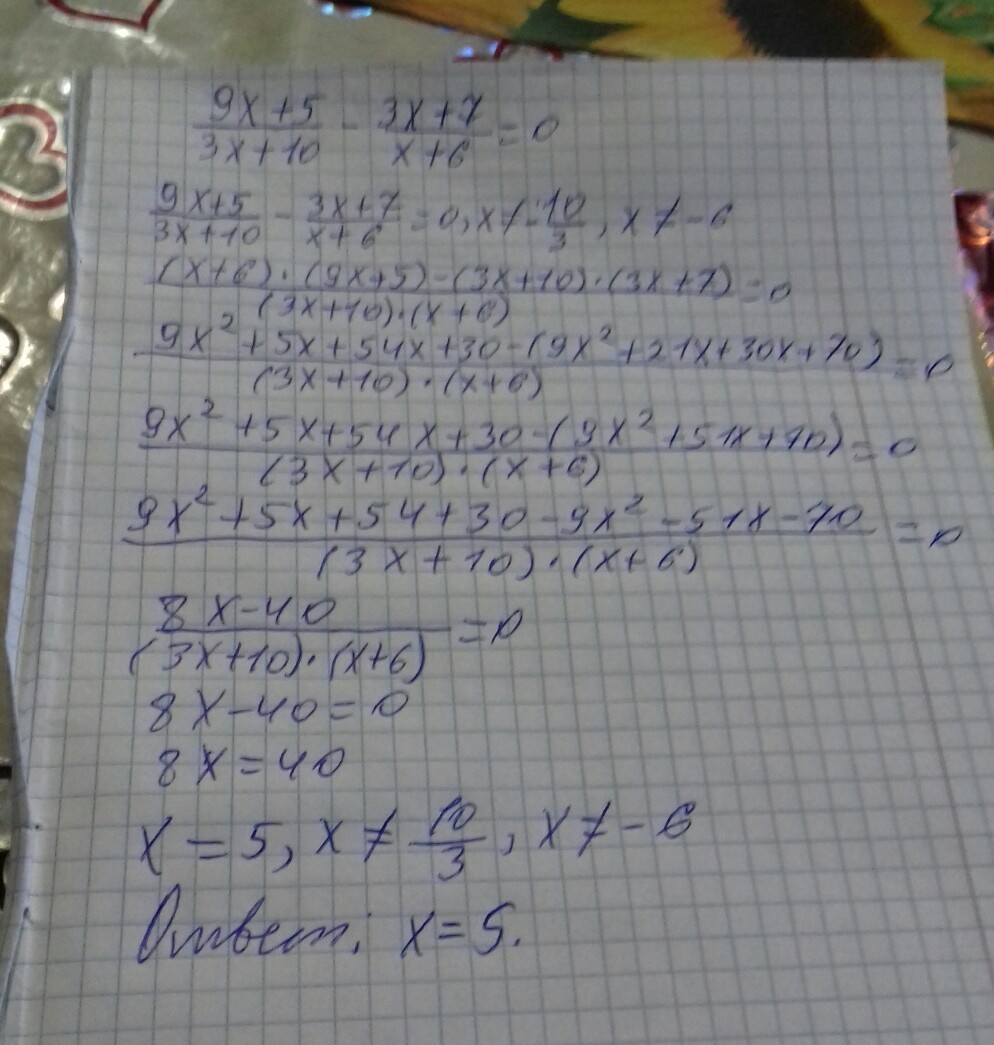 (9x+5)/(3x+10) - (3x+7)/(x+6) = 0
(9x+5)/(3x+10) - (3x+7)/(x+6) = 0, x ≠ -10/3, x ≠ -6
((x+6)·(9x+5)-(3x+10)·(3x+7))/((3x+10)·(x+6)) = 0
(9x²+5x+54x+30-(9x²+21x+30x+70))/((3x+10)·(x+6)) = 0
(9x²+5x+54x+30-(9x²+51x+70))/((3x+10)·(x+6)) = 0
(9x²+5x+54+30-9x²-51x-70)/((3x+10)·(x+6)) = 0
(8x-40)/((3x+10)·(x+6)) = 0
8x-40=0
8x=40
x=5, x ≠ 10/3, x ≠ -6
Ответ: x=5.